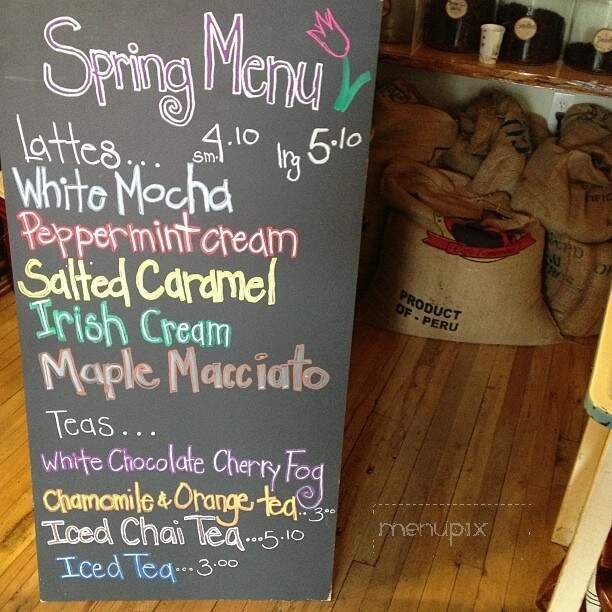 Spring Menu
Lattes... sm. 4.10 lrg 5.10
White Mocha
Peppermint cream
Salted Caramel
Irish Cream
Maple Macciato
Teas...
White Chocolate Cherry Fog
Chamomile & Orange tea..3.00
Iced Chai Tea...5.10
Iced Tea...3.00
PRODUCT
OF - PERU
menupix